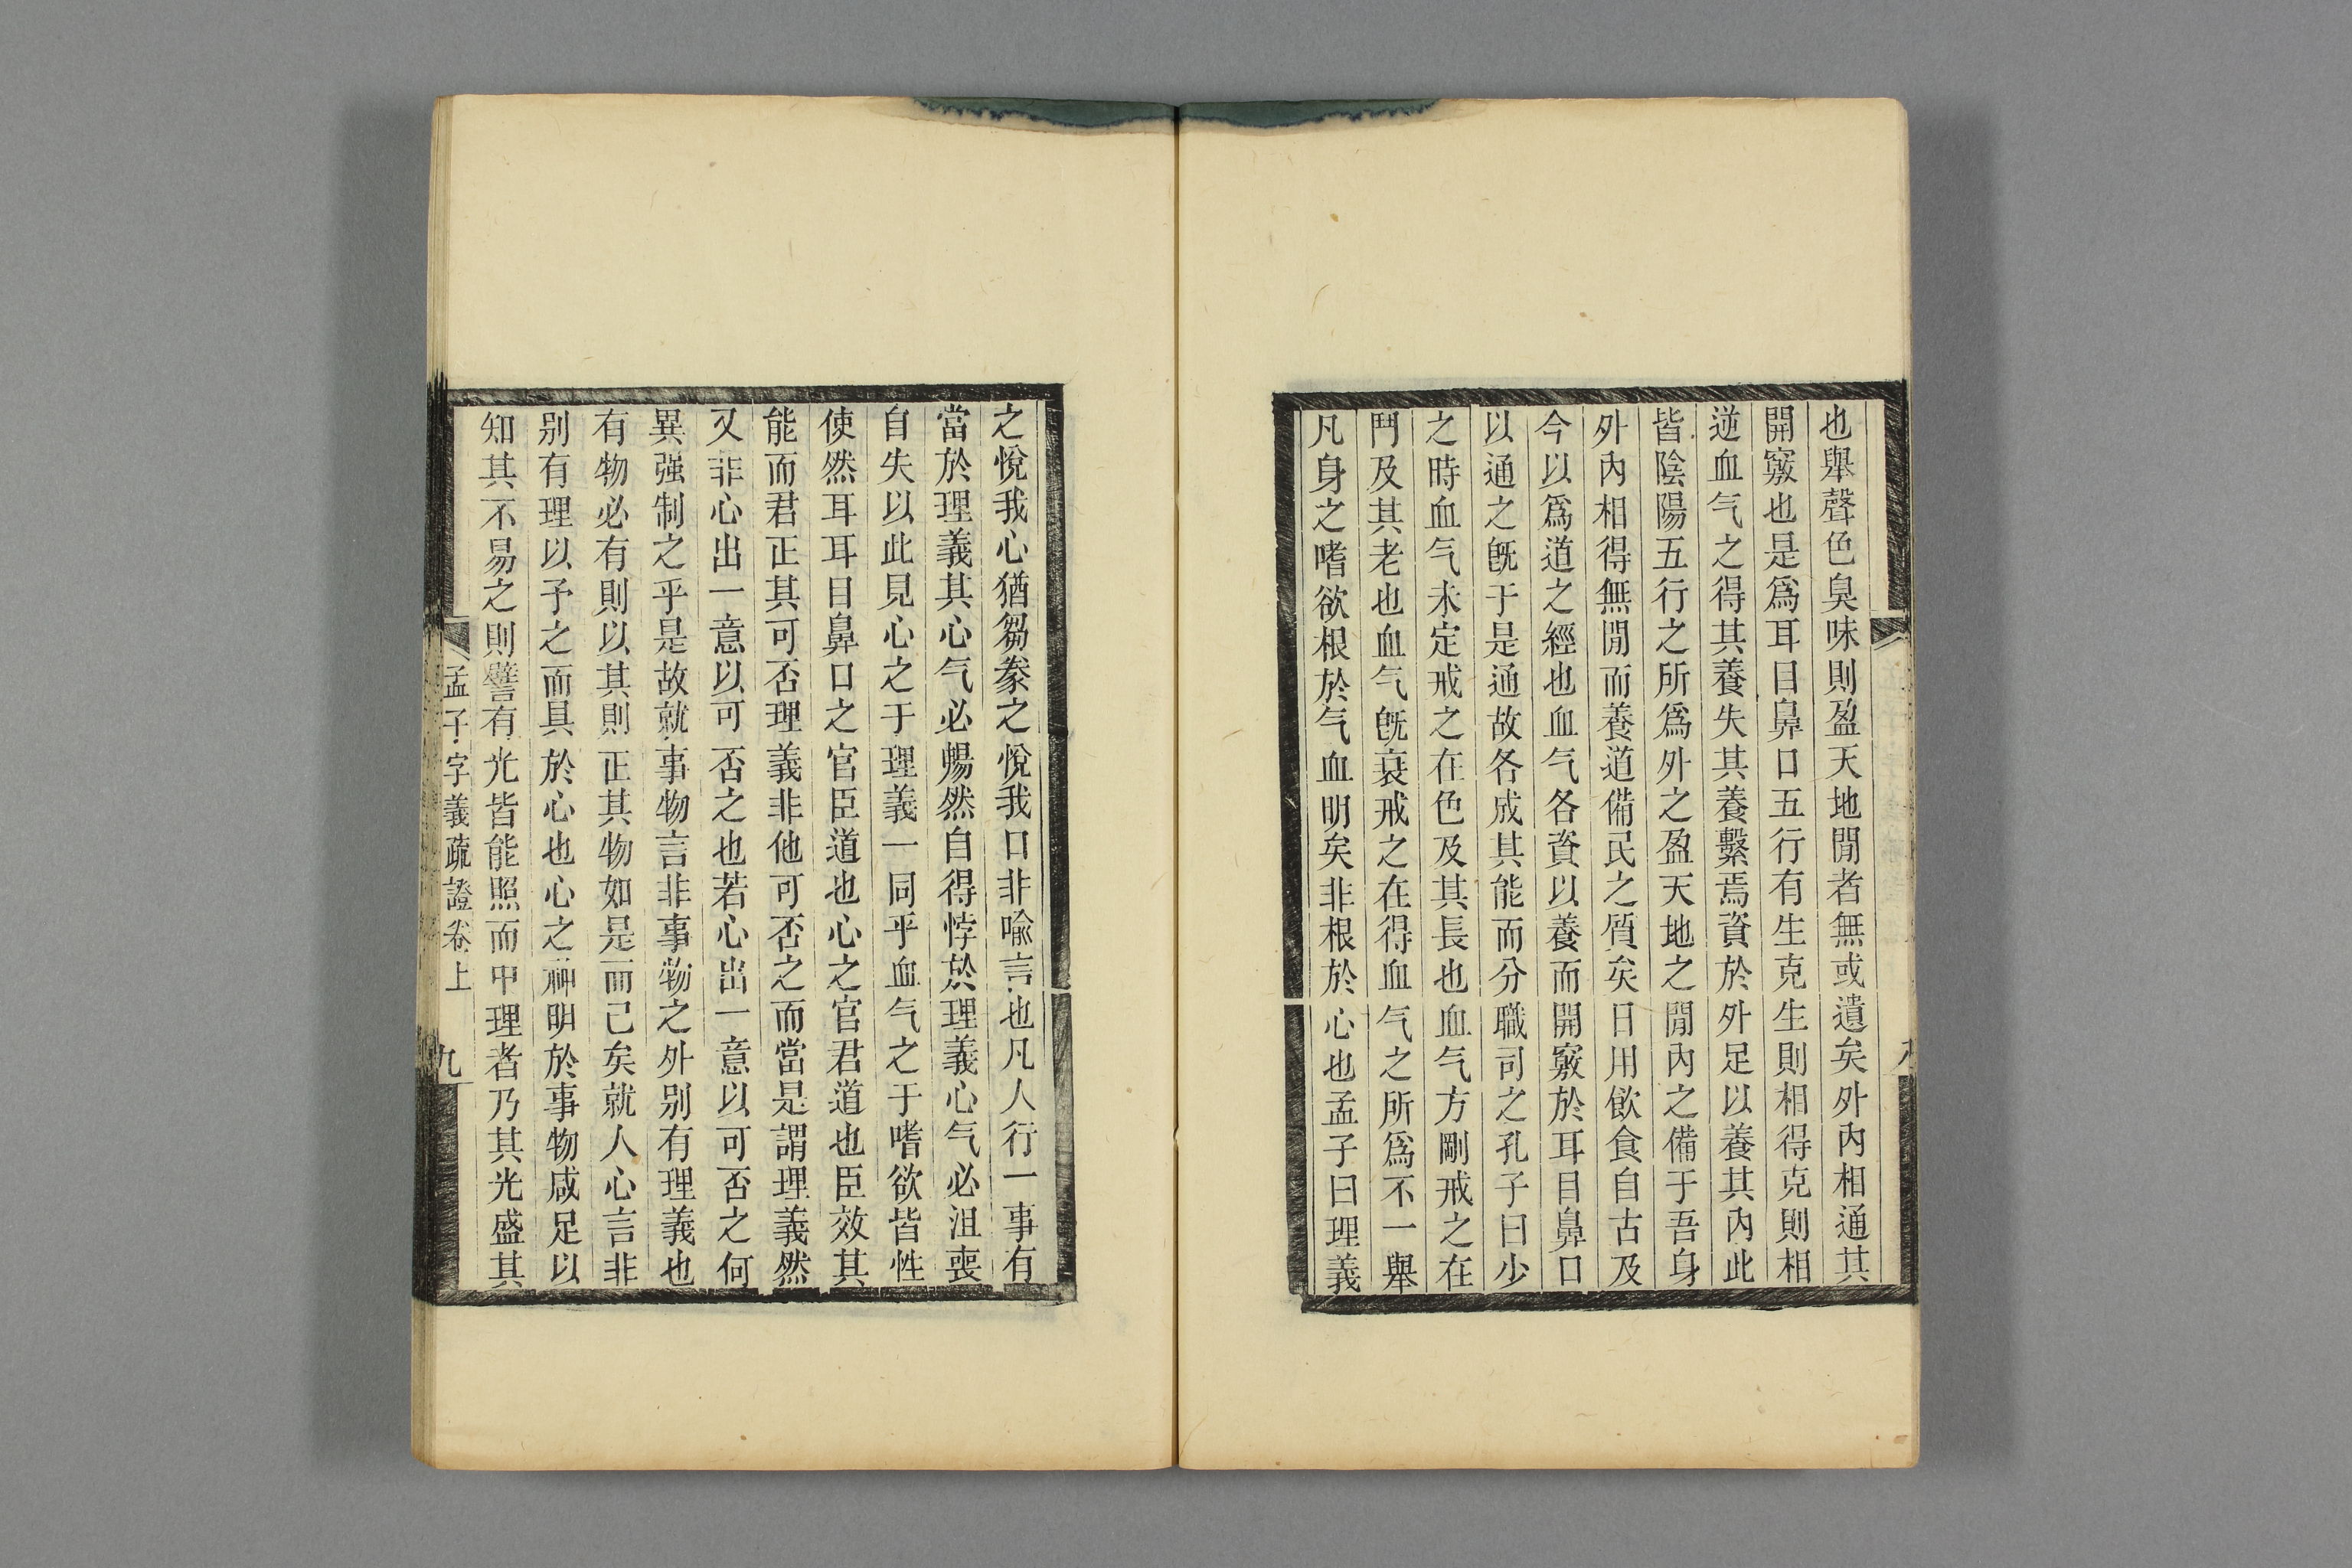 也舉聲色臭味則盈天地閒者無或遺矣外內相通其
開竅也是爲耳目鼻口五行有生克生則相得克則相
逆血气之得其養失其養繫焉資於外足以養其內此
皆陰陽五行之所爲外之盈天地之閒內之備于吾身
外內相得無閒而養道備民之質矣日用飲食自古及
今以爲道之經也血气各資以養而開竅於耳目鼻口
以通之旣于是通故各成其能而分職司之孔子曰少
之時血气未定戒之在色及其長也血气方剛戒之在
鬥及其老也血气旣衰戒之在得血气之所爲不一舉
凡身之嗜欲根於气血明矣非根於心也孟子曰理義
之悅我心猶芻豢之悅我口非喻言也凡人行一事有
當於理義其心气必暢然自得悖於理義心气必沮喪
自失以此見心之于理義一同乎血气之于嗜欲皆性
使然耳耳目鼻口之官臣道也心之官君道也臣效其
能而君正其可否理義非他可否之而當是謂理義然
又非心出一意以可否之也若心出一意以可否之何
異强制之乎是故就事物言非事物之外别有理義也
有物必有則以其則正其物如是而已矣就人心言非
别有理以予之而具於心也心之神明於事物咸足以
知其不易之則譬有光皆能照而中理者乃其光盛其
孟子字義疏證卷上
九